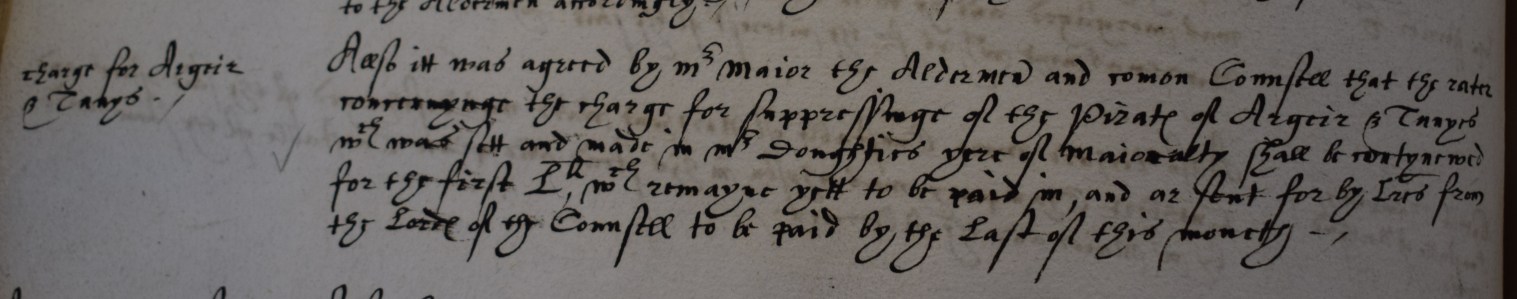 to the Aldermen accordingly
charge for Argeir
& Tunys
Allso itt was agreed by mr Maior the Aldermen and comon Counsell that the rates
concernynge the charge for suppressinge of the Pirates of Argeir & Tunyes
wch was sett and made in mr Doughties yere of Maioralty shall be contynewed
for the first Lli, wch remayne yett to be paid in, and ar sent for by Lres from
the Lordes of the Counsell to be paid by the Last of this moneth